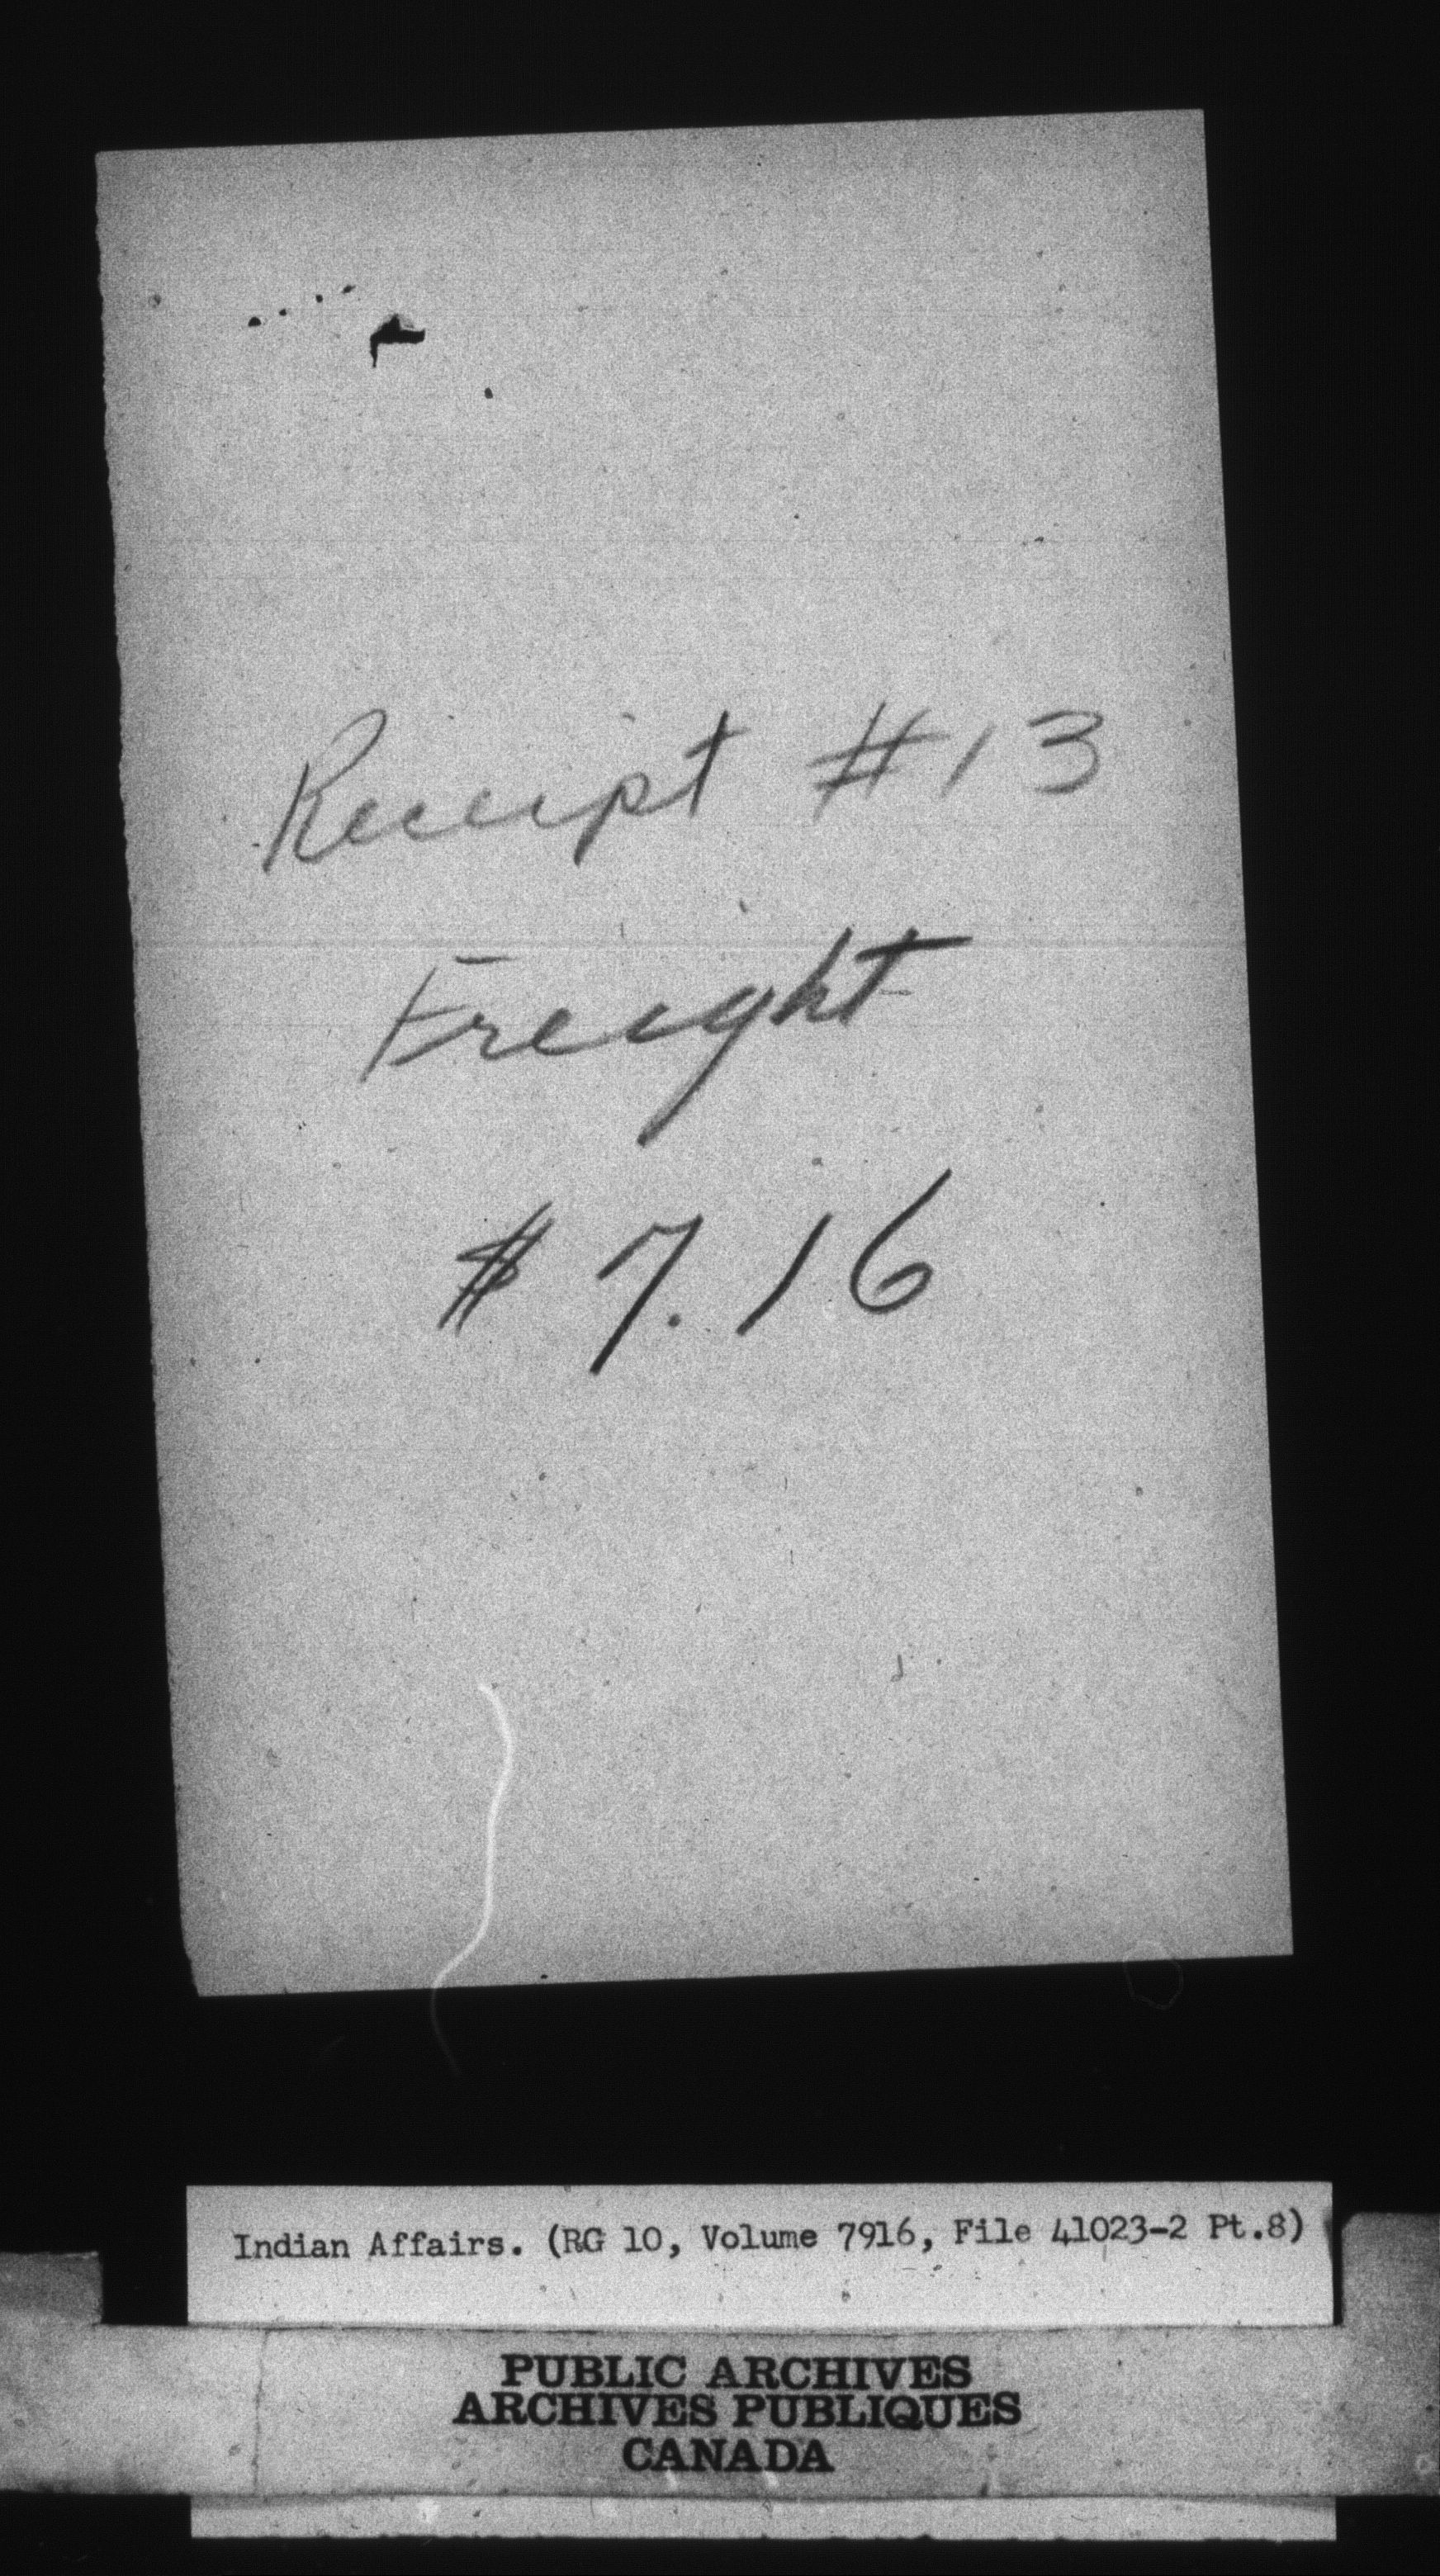 Receipt #13
Freight
$7.16
Indian Affairs. (RG 10, Volume 7916, File 41023-2 Pt.8)
PUBLIC ARCHIVES
ARCHIVES PUBLIQUES
CANADA